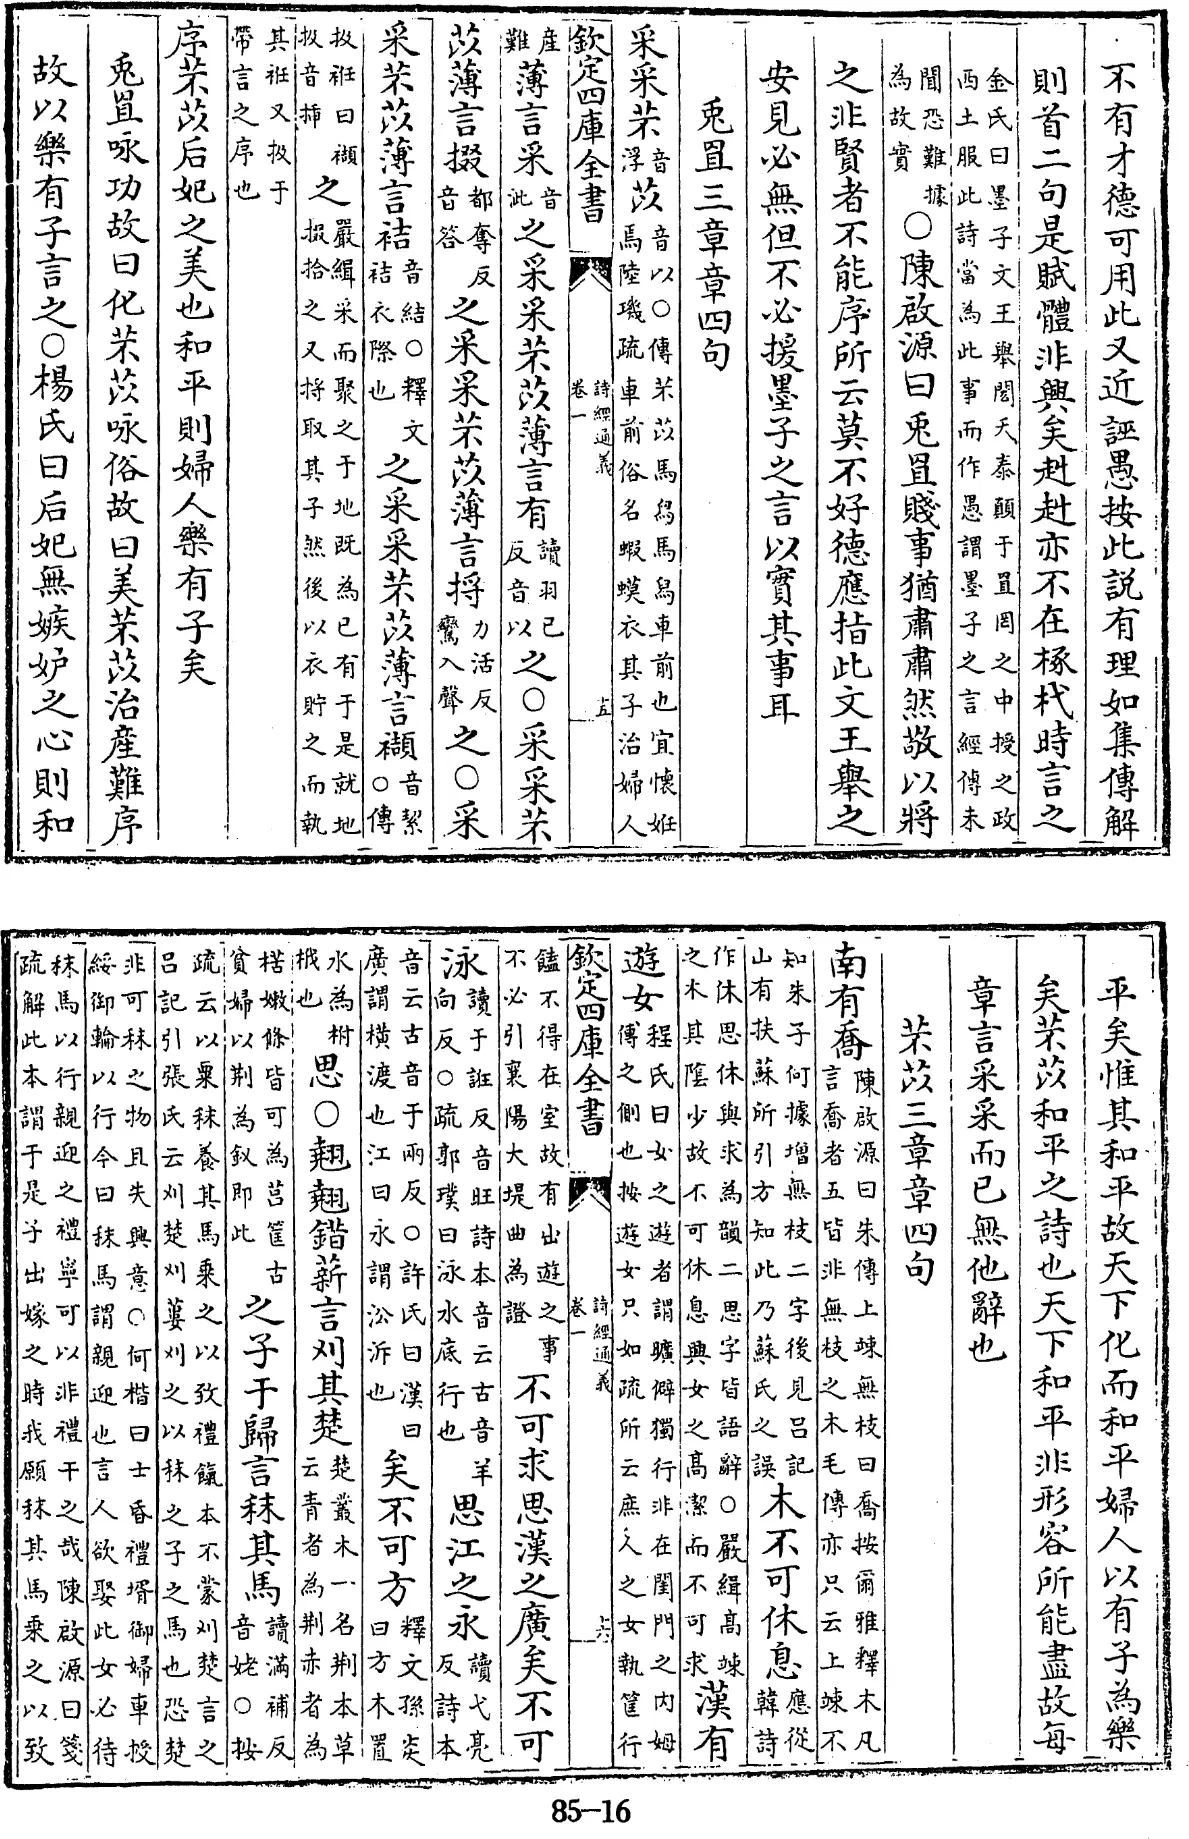 不有才德可用此又近誣愚按此説有理如集傳解
則首二句是賦體非興矣赳赳亦不在椓杙時言之
金氏曰墨子文王舉閎夭泰顛于罝罔之中授之政
西土服此詩當為此事而作愚謂墨子之言經傳未
聞恐難據為故實○陳啟源曰兎罝賤事猶肅肅然敬以將
之非賢者不能序所云莫不好德應指此文王舉之
安見必無但不必援墨子之言以實其事耳
兎罝三章章四句
采采芣音浮苡音以○傳芣苡馬舄馬舄車前也宜懷姙焉陸璣疏車前俗名蝦蟆衣其子治婦人
欽定四庫全書 詩經通義 卷一 十五
産難薄言采音泚之采采芣苡薄言有讀羽已反音以之○采采芣
苡薄言掇都奪反音答之采采芣苡薄言捋力活反鸞入聲之○采
采芣苡薄言袺音結○釋文袺衣際也之采采芣苡薄言襭音絜○傳
扱衽曰襭扱音揷之嚴緝采而聚之于地既為已有于是就地掇拾之又捋取其子然後以衣貯之而執
其衽又扱于帶言之序也
序芣苡后妃之美也和平則婦人樂有子矣
兎罝咏功故曰化芣苡咏俗故曰美芣苡治産難序
故以樂有子言之○楊氏曰后妃無嫉妒之心則和
平矣惟其和平故天下化而和平婦人以有子為樂
矣芣苡和平之詩也天下和平非形容所能盡故每
章言采采而已無他辭也
芣苡三章章四句
南有喬陳啟源曰朱傳上竦無枝曰喬按爾雅釋木凡言喬者五皆非無枝之木毛傳亦只云上竦不
知朱子何據增無枝二字後見呂記山有扶蘇所引方知此乃蘇氏之誤木不可休息應從韓詩
作休思休與求為韻二思字皆語辭○嚴緝高竦之木其隂少故不可休息興女之高潔而不可求漢有
遊女程氏曰女之遊者謂曠僻獨行非在閨門之内姆傅之側也按遊女只如疏所云庶人之女執筐行
欽定四庫全書 詩經通義 卷一 十六
饁不得在室故有出遊之事不必引襄陽大堤曲為證不可求思漢之廣矣不可
泳讀于誑反音旺詩本音云古音羊向反○疏郭璞曰泳水底行也思江之永讀弋亮反詩本
音云古音于兩反○許氏曰漢曰廣謂橫渡也江曰永謂沿泝也矣不可方釋文孫炎曰方木置
水為柎栰也思○翹翹錯薪言刈其楚楚叢木一名荆本草云青者為荆赤者為
楛嫩條皆可為莒筐古貧婦以荆為釵即此之子于歸言秣其馬讀滿補反音姥○按
疏云以粟秣養其馬乘之以致禮餼本不蒙刈楚言之呂記引張氏云刈楚刈蔞刈之以秣之子之馬也恐楚
非可秣之物且失興意○何楷曰士昏禮壻御婦車授綏御輪以行今曰秣馬謂親迎也言人欲娶此女必待
秣馬以行親迎之禮寧可以非禮干之哉陳啟源曰箋疏解此本謂于是子出嫁之時我願秣其馬乘之以致
85-16